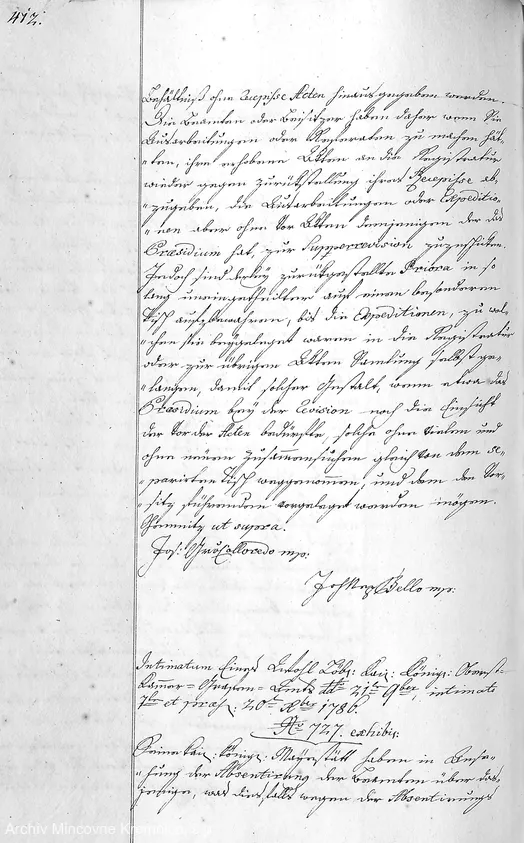 412.
Behältniß ohne Recepisse Acten hinausgegeben werden.
Die Beamten oder Beisitzer haben daher wenn Sie
Ausarbeitungen oder Referaten zu machen hät-
"ten, ihre erhobene Akten an die Registratur
wieder gegen Zurükstellung ihres Recepisse ab-
"zugeben, die Ausarbeitungen oder Expeditio-
"nen aber ohne vor Akten demjenigen der das
Præsidium hat, zur Superrevision zuzuschiken.
Jedoch sind derley zurükgestellte Priora in so
lang uneingetheilter auf einen besonderen
Tisch aufzubewahren, bis die Expeditionen, zu wel-
"chen sie beygeleget waren in die Registratur
oder zur übrigen Akten Samlung selbst ge-
"langen, damit solcher Gestalt, wenn etwa das
Præsidium bey der Revision noch die Einsicht
der vorder Acten bedürfte, solche ohne vielen und
ohne neuen Zusammensuchen gleich von dem se-
"parirten Tisch weggenommen, und dem den Vor-
"sitz führenden vorgeleget werden mögen.
Schemnitz ut supra.
Jos: Gr: Colloredo mp:
Joh Nep Bello mp:
Intimatum Eines Wohl Löb: Kai: König: Oberst-
Kammer-Grafen-Amts ddto 21ten 9ber, intimati
7ber et præs: 20ten Xber 1786.
No 727. exhibit:
Seine Kai: König: Mayestätt haben in Anse-
"hung der Absentirung der Beamten über das
jenige, was dießfalls wegen der Absentirungs
Archiv Mincovne Kremnica